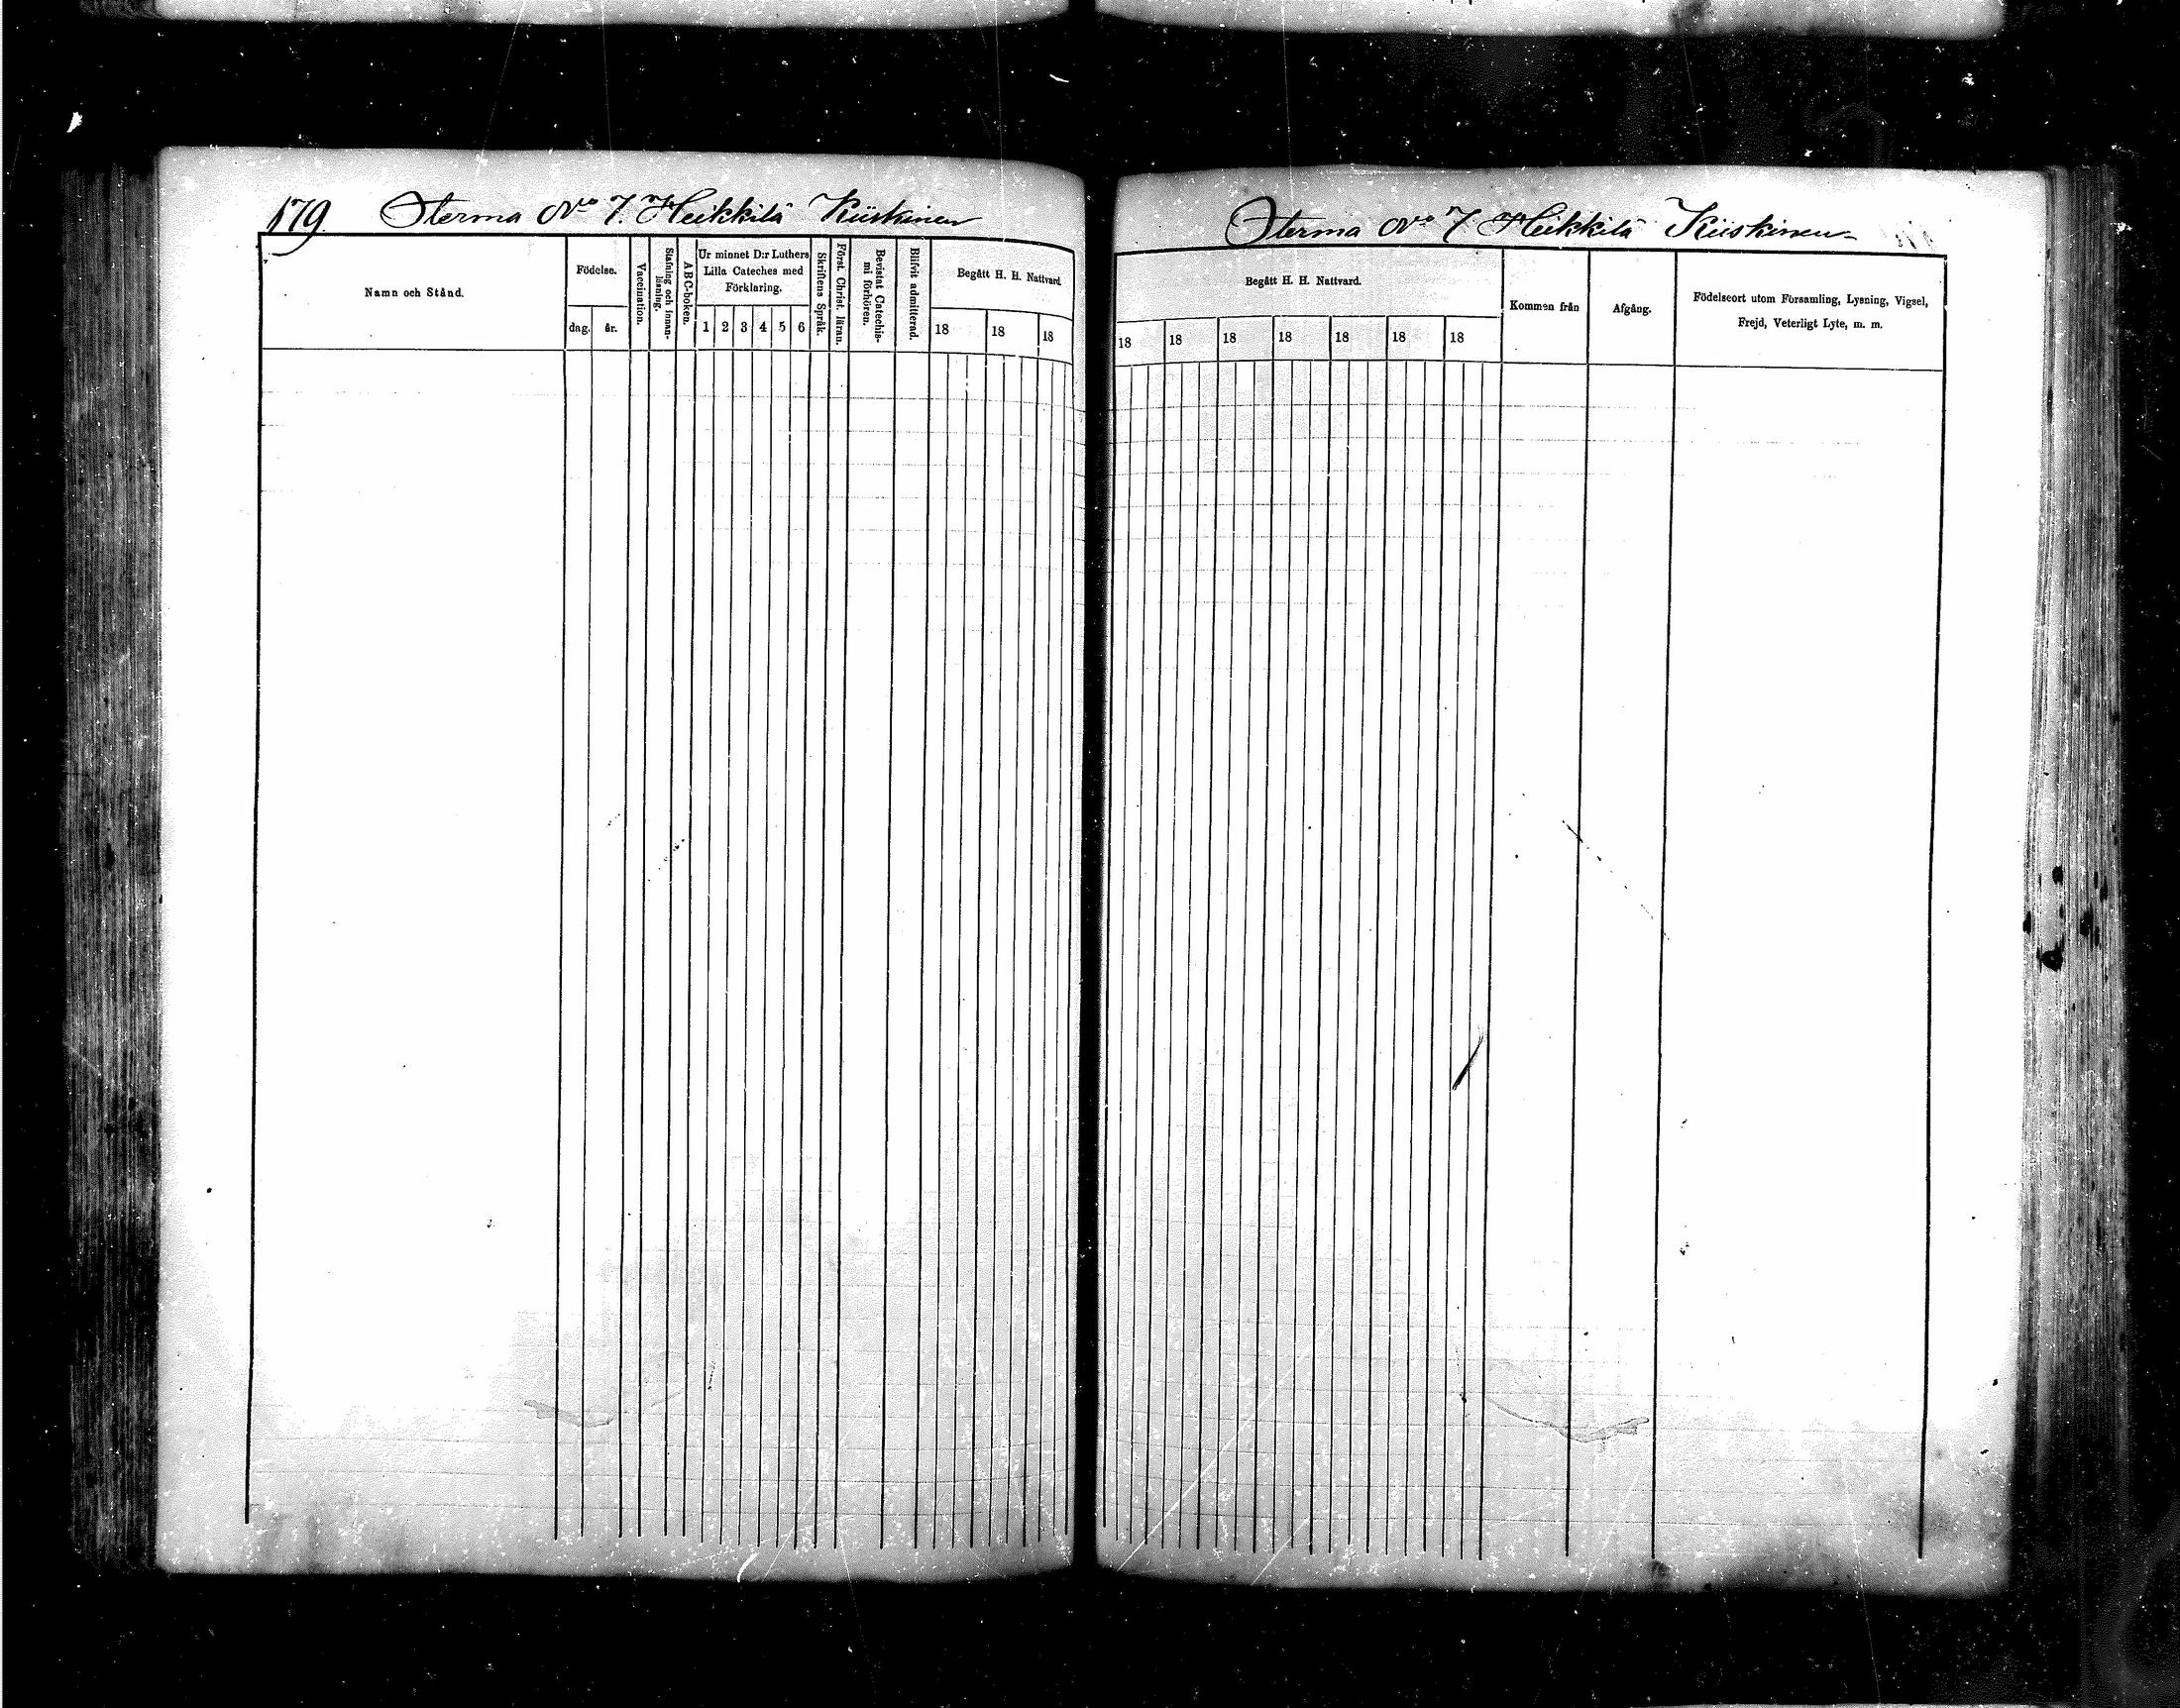 179. Sterma No 7. Heikkilä Kiiskinen
Namn och Stånd.
Födelse.
dag. år.
Vaccination.
Stafning och innan-
läsning.
ABC-boken.
Ur minnet D:r Luthers
Lilla Cateches med
Förklaring.
1 2 3 4 5 6
Skriftens Språk.
Först. Christ. läran.
Bevistat Catechis-
mi förhören.
Blifvit admitterad.
Begått H. H. Nattvard.
18 18 18
Sterma No 7 Heikkilä Kiiskinen
Begått H. H. Nattvard.
18 18 18 18 18 18 18
Kommen från
Afgång.
Födelseort utom Församling, Lysning, Vigsel,
Frejd, Veterligt Lyte, m. m.